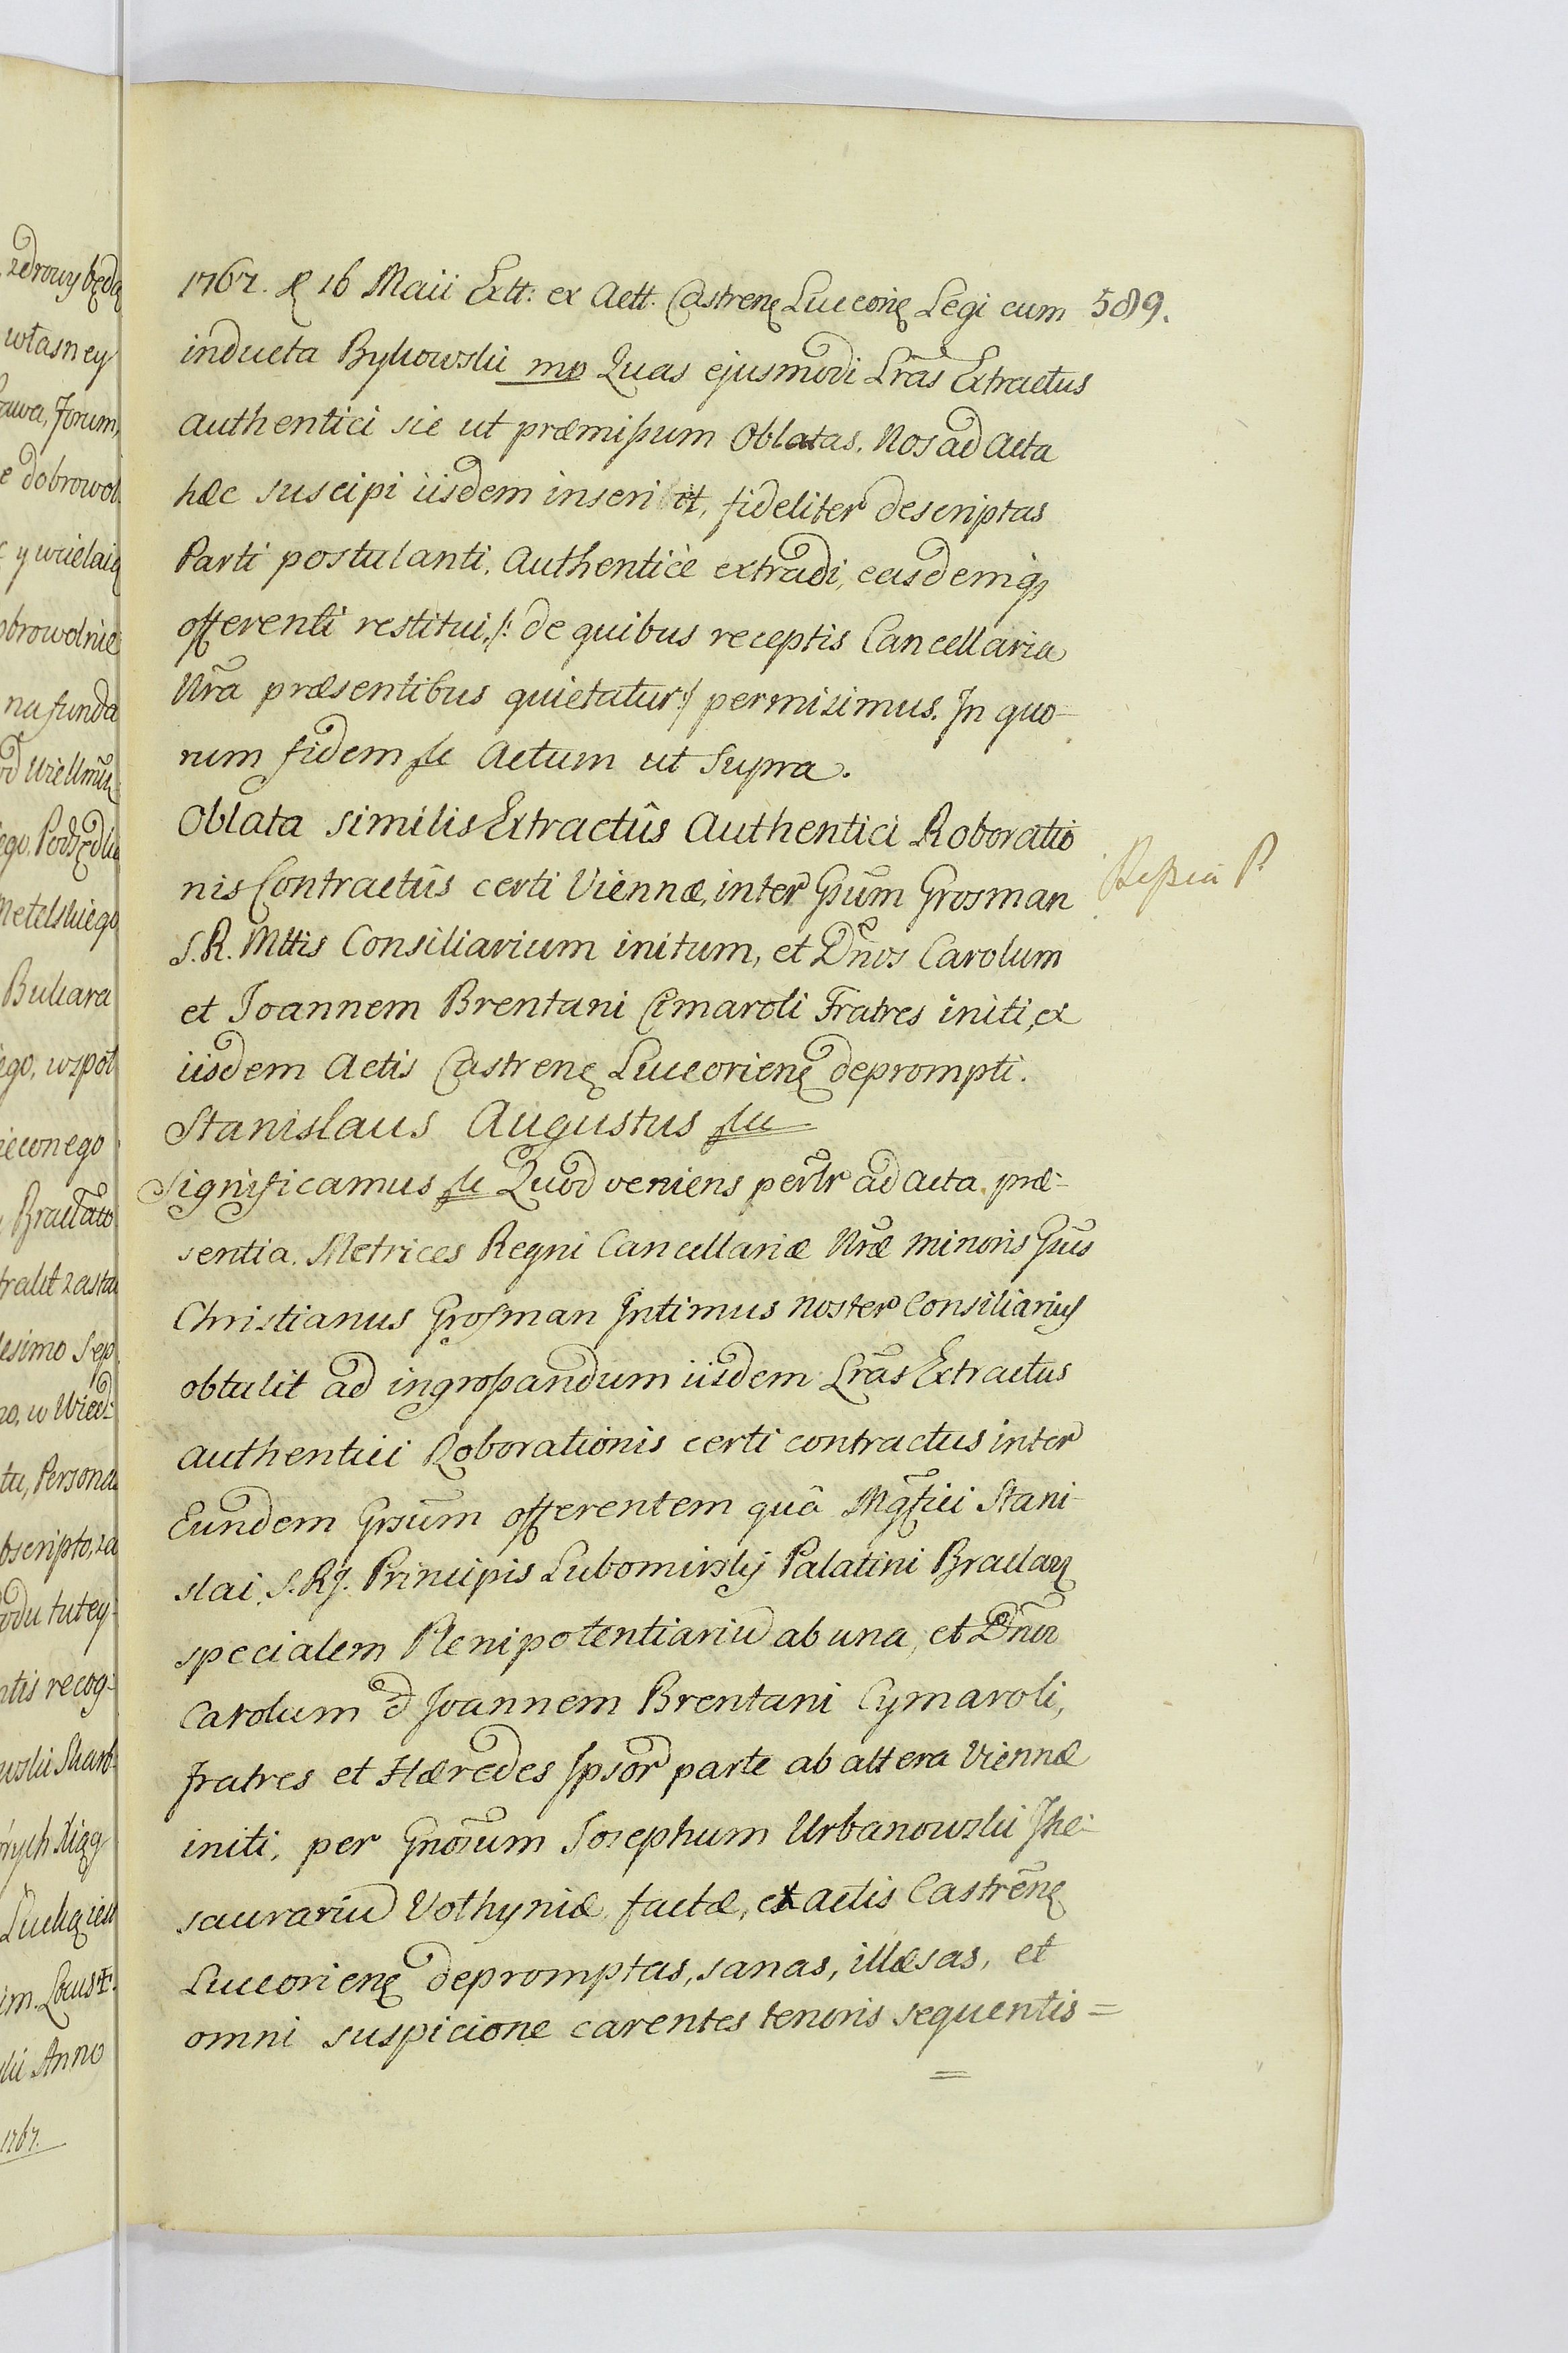 zdrowy będą
własney
Forum,
e dobrowol
y wcielaią
obrowolnie
na funda
od Wiellmu
ego, Podsędka
Metelskiego
Buhara
ego, wspol
Bracław
lesimo Sep
no, w Wied:
tu, Persona
bscripto, za
odu tutey:
ntis recog:
wski Skarb:
nych Xiąg
im. Locust.
ski Anno
1767.
1767. & 16 Maii Extt: ex Actt. Castrenς Lucconς Legi cum 589.
inducta Bykowski mp Quas ejusmodi Lrãs Extractus
authentici sic ut præmissum Oblatas. Nos ad Acta
hæc suscipi iisdem inseri et, fideliter descriptas
Parti postulanti, Authenticè extradi, easdemq
offerenti restitui /: de quibus receptis Cancellaria
Nrã præsentibus quietatur :/ permisimus. In quo-
rum fidem &c Actum ut Supra.
Oblata similis Extractûs Authentici Roboratio
nis Contractûs certi Viennæ, inter Gsũm Grosman
S. R. Mttis Consiliarium initum, et Dnõs Carolum
et Joannem Brentani Cimaroli Fratres initi, ex
iisdem Actis Castrenς Luccorienς deprompti.
Stanislaus Augustus &c
Significamus &c Quod veniens persltr ad Acta præ-
sentia. Metrices Regni Cancellariæ Nrã minoris Gsũs
Christianus Grosman Intimus noster Consiliarius
obtulit ad ingrossandum iisdem Lrãs Extractus
authentici Roborationis certi contractus inter
Eundem Grsũm offerentem quà Mgfici Stani-
slai S. R J. Principis Lubomirskij Palatini Braclavς
specialem Plenipotentiariũ ab una, et Dnũm
Carolum & Joannem Brentani Cymaroli,
Fratres et Hæredes Ipsor parte ab altera Viennæ
initi, per Gnosũm Josephum Urbanowski The-
saurariũ Volhyniæ factæ, ex actis Castrẽnς
Luccorienς depromptas, sanas, illæsas, et
omni suspicione carentes tenoris sequentis =
=